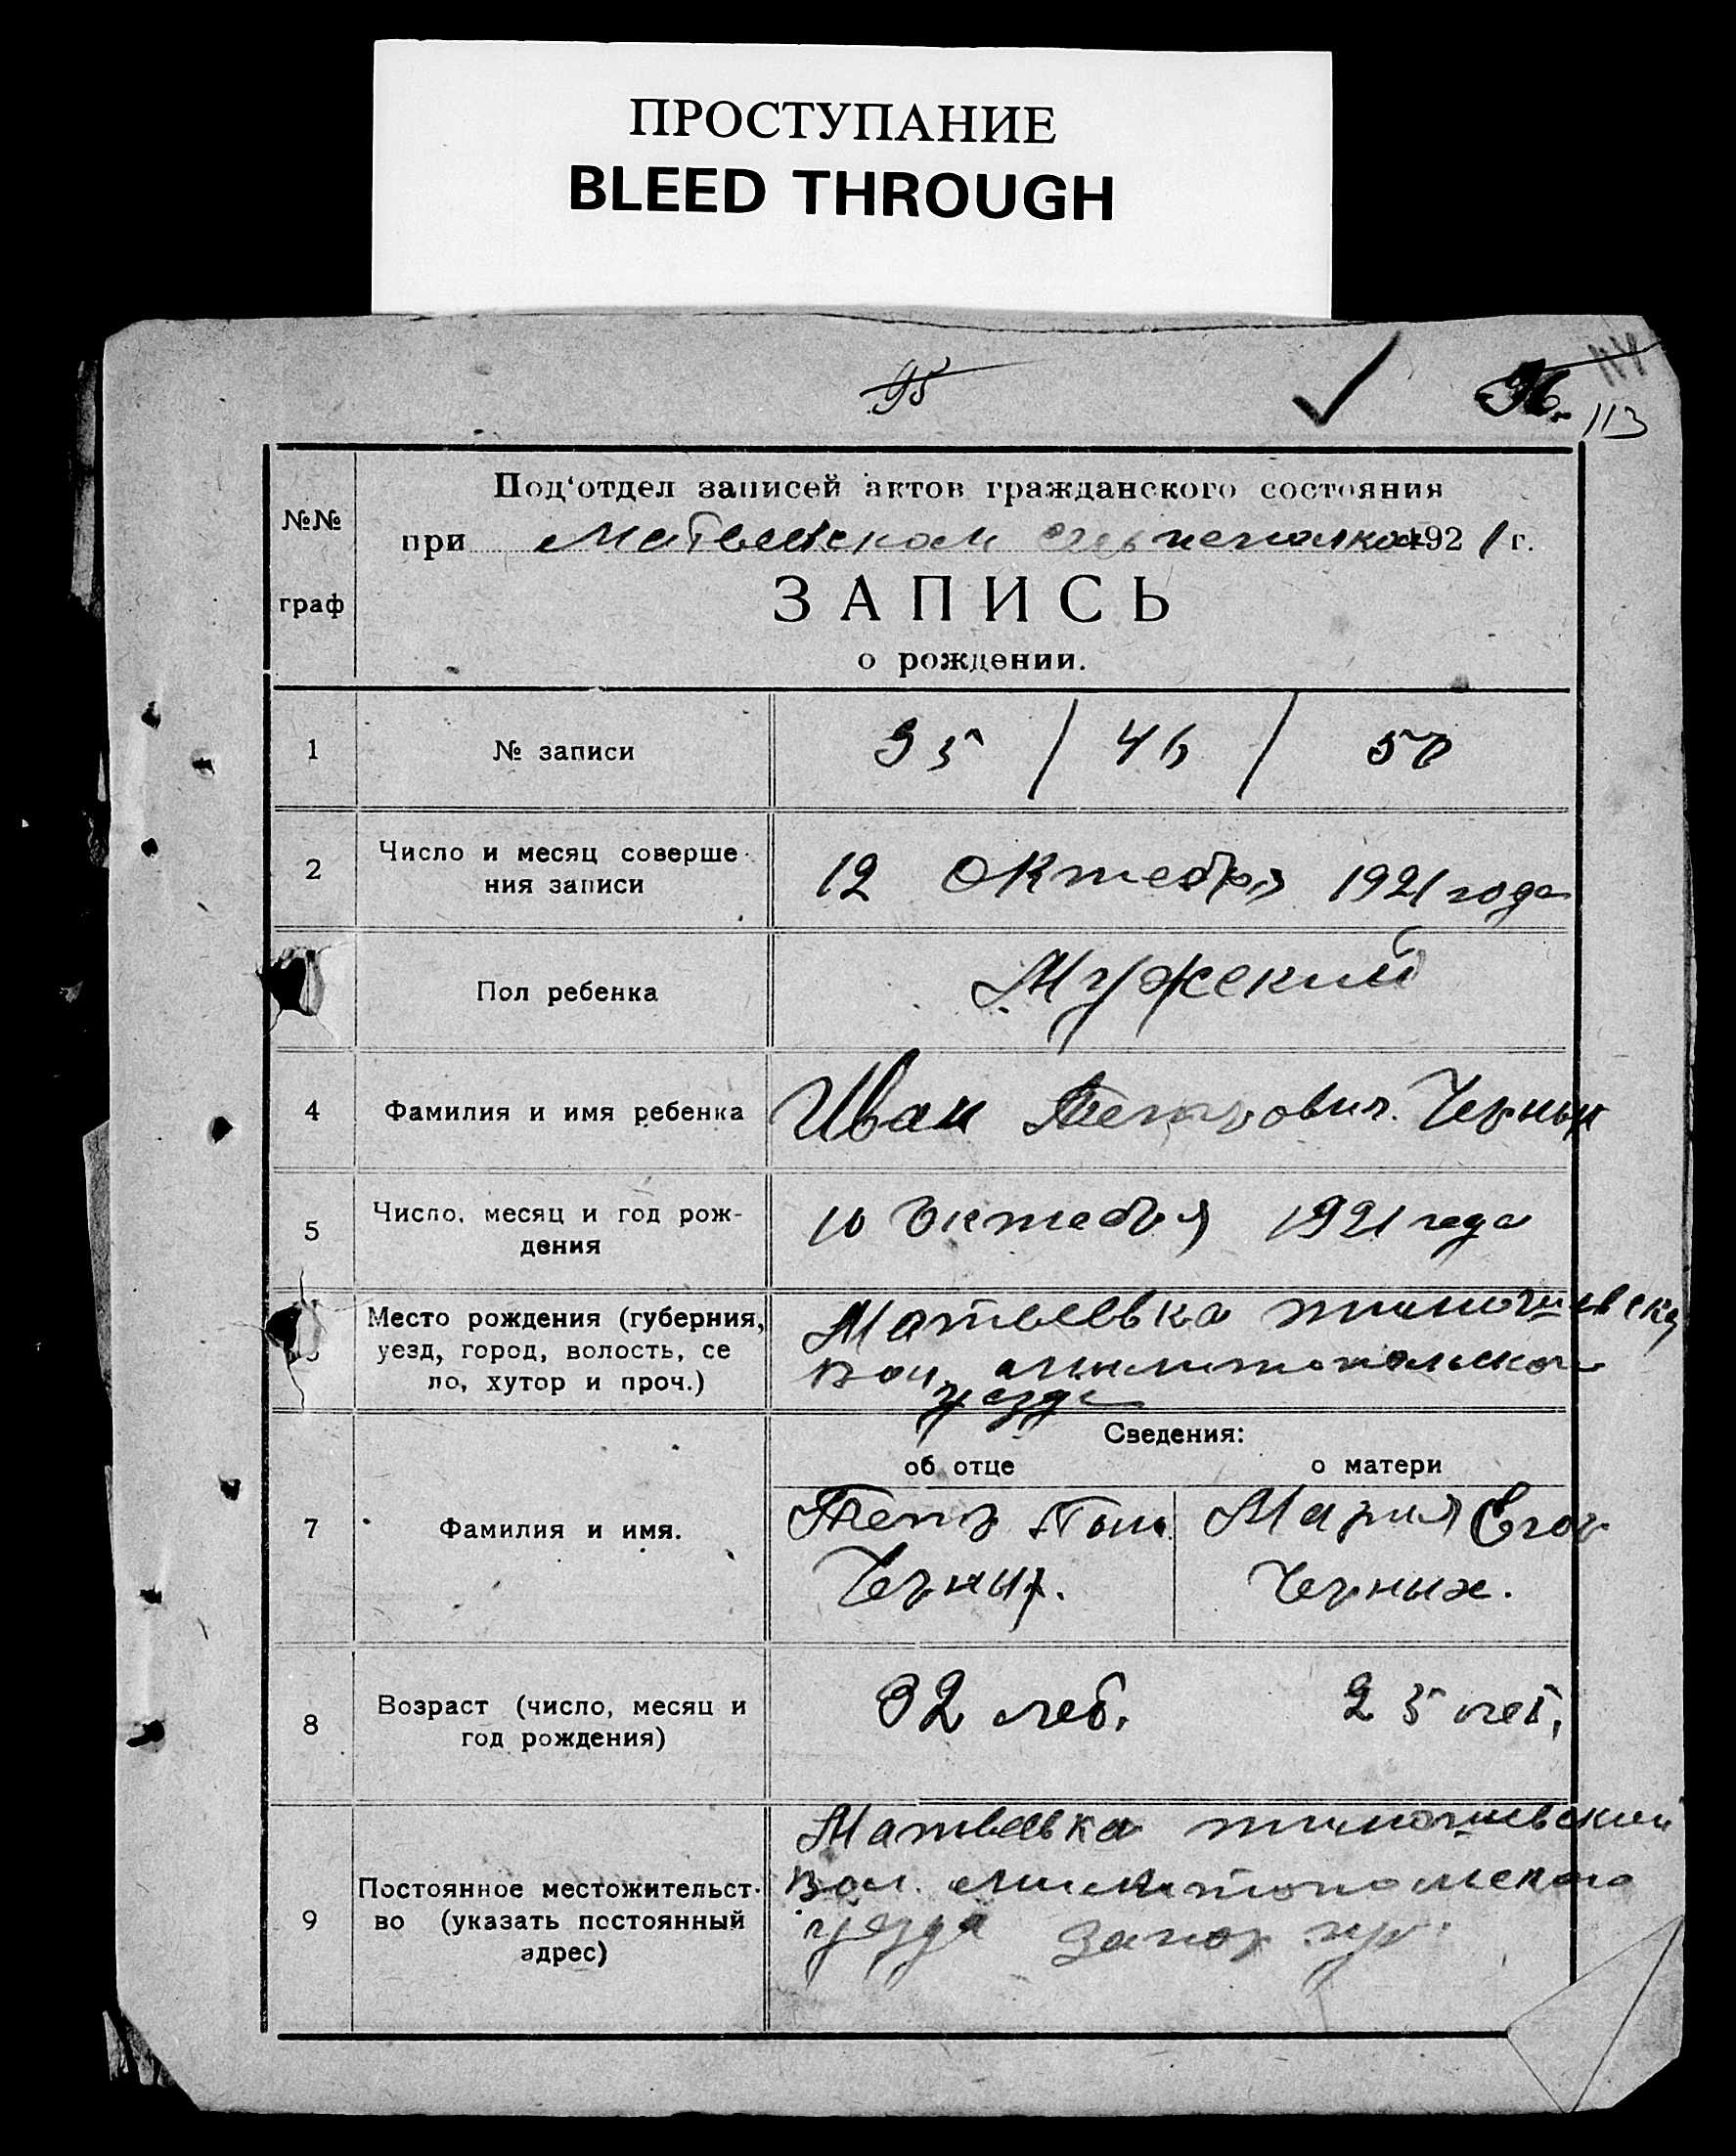 ПРОСТУПАНИЕ
BLEED THROUGH
95
96. 113
№№
граф
Под'отдел записей актов гражданского состояния
при Матвеевском 1921 г.
ЗАПИСЬ
о рождении.
1 № записи 95 / 46 /
2 Число и месяц соверше-
ния записи
12 Октебря 1921 года
Пол ребенка Мужский
4 Фамилия и имя ребенка Иван Петрович. Черных
5 Число, месяц и год рож-
дения
10 Октебря 1921 года
Место рождения (губерния,
уезд, город, волость, се
ло, хутор и проч.)
Матвеевка
вол.
уезда
Сведения:
об отце о матери
7 Фамилия и имя.
Петр Мария Егор
Черных. Черных.
8 Возраст (число, месяц и
год рождения)
32 лет. 25 лет.
9 Постоянное местожительст-
во (указать постоянный
адрес)
Матвеевка
вол.
уезда Запор. губ.